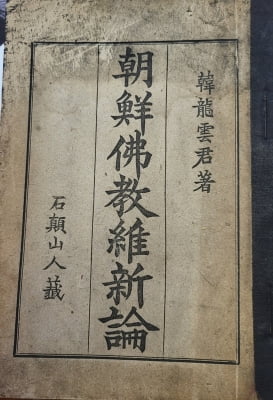 韓龍雲君著
朝鮮佛敎維新論
石顚山人藏